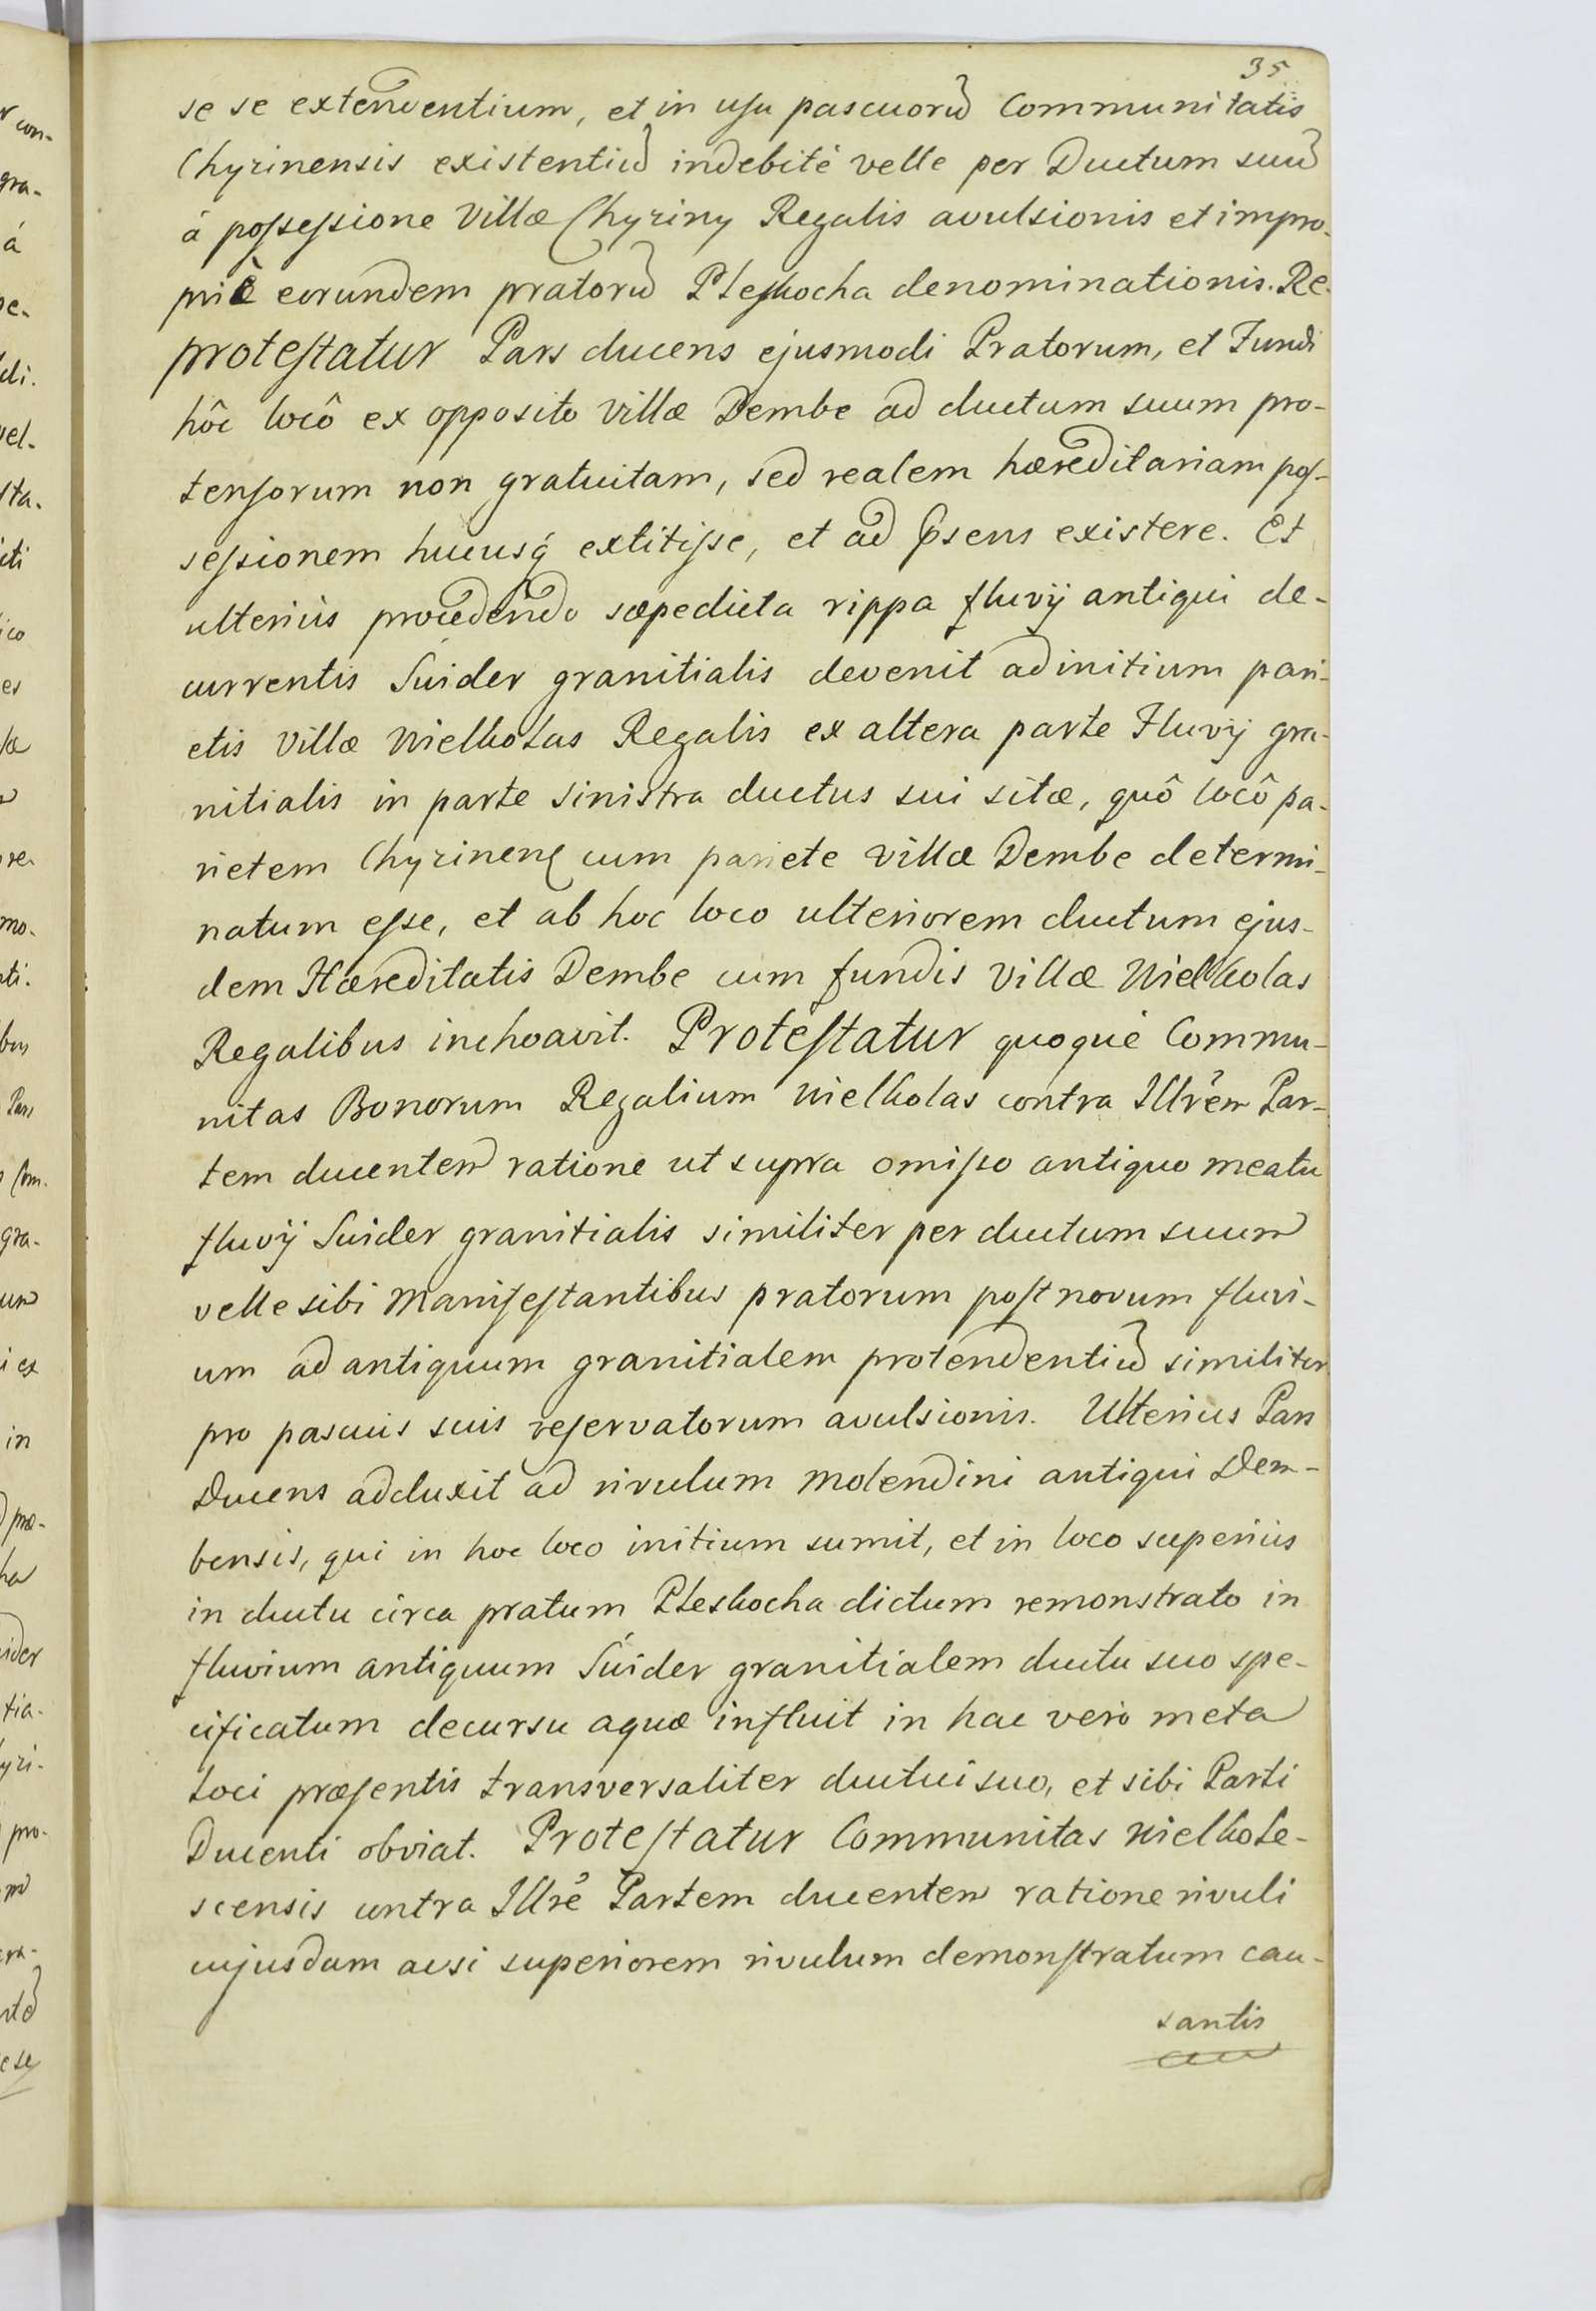 35
se se extendentium, et in usu pascuorũ Communitatis
Chyzinensis existentiũ indebitè velle per Ductum suũ
á poſseſsione Villæ Chyziny Regalis avulsionis et impro-
prié eorundem pratorũ Pleſkocha denominationis. Re-
proteſtatur Pars ducens ejusmodi Pratorum, et Fundi
hôc locô ex opposito Villæ Dembe ad ductum suum pro-
tenſorum non gratuitam, sed realem hæreditariam poſ-
seſsionem hucusq́ extitiſse, et ad p̃sens existere. Et
ulteriús procedendo sæpedicta rippa fluvÿ antiqui de-
currentis Swider granitialis devenit ad initium pari-
etis Villæ Wielkolas Regalis ex altera parte Fluvÿ gra-
nitialis in parte sinistra ductus sui sitæ, quô locô pa-
rietem Chyzinenſ cum pariete Villæ Dembe determi-
natum eſse, et ab hoc loco ulteriorem ductum ejus-
dem Hæreditatis Dembe cum fundis Villæ Wielkolas
Regalibus inchoavit. Proteſtatur quoque Commu-
nitas Bonorum Regalium Wielkolas contra Illrẽm Par-
tem ducentem ratione ut supra omiſso antiquo meatu
fluvÿ Swider granitialis similiter per ductum suum
velle sibi Manifeſtantibus pratorum poſt novum fluvi-
um ad antiquum granitialem protendentiũ similiter
pro pascuis suis reſervatorum avulsionis. Ulterius Pars
Ducens adduxit ad rivulum Molendini antiqui Dem-
bensis, qui in hoc loco initium sumit, et in loco superiús
in ductu circa pratum Pleskocha dictum remonstrato in
fluvium antiquum Swider granitialem ductu suo spe-
cificatum decursu aquæ influit in hac veró meta
loci præſentis transversaliter ductui suo, et sibi Parti
Ducenti obviat. Proteſtatur Communitas Wielkole-
scensis contra Illrẽ Partem ducentem ratione rivuli
cujusdam acsi superiorem rivulum demonſtratum cau-
santis